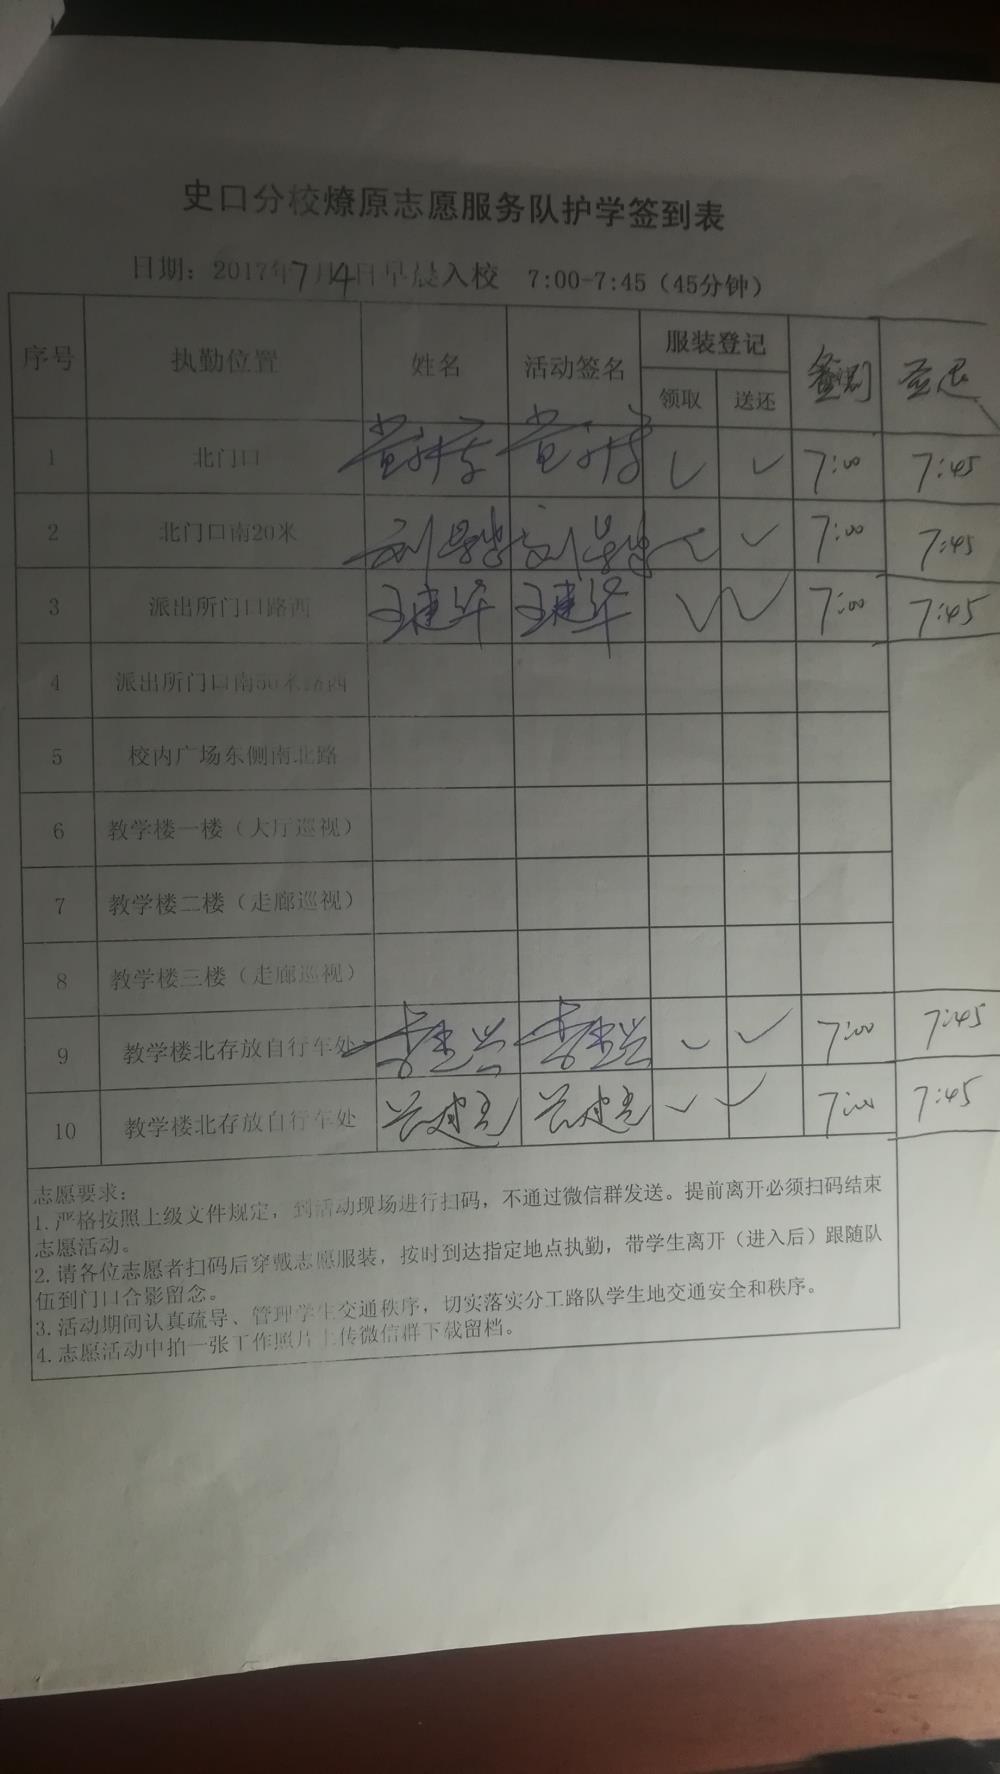 史口分校燎原志愿服务队护学签到表
日期：2017年7月14日早晨入校 7:00-7:45（45分钟）
序号 执勤位置 姓名 活动签名 服装登记 签到 签退
领取 送还
1 北门口 7:00 7:45
2 北门口南20米 刘 刘 7:00 7:45
3 派出所门口路西 王建华 王建华 7:00 7:45
4 派出所门口南50米路西
5 校内广场东侧南北路
6 教学楼一楼（大厅巡视）
7 教学楼二楼（走廊巡视）
8 教学楼三楼（走廊巡视）
9 教学楼北存放自行车处 李 李 7:00 7:45
10 教学楼北存放自行车处 7:00 7:45
志愿要求：
1.严格按照上级文件规定，到活动现场进行扫码，不通过微信群发送。提前离开必须扫码结束
志愿活动。
2.请各位志愿者扫码后穿戴志愿服装，按时到达指定地点执勤，带学生离开（进入后）跟随队
伍到门口合影留念。
3.活动期间认真疏导、管理学生交通秩序，切实落实分工路队学生地交通安全和秩序。
4.志愿活动中拍一张工作照片上传微信群下载留档。